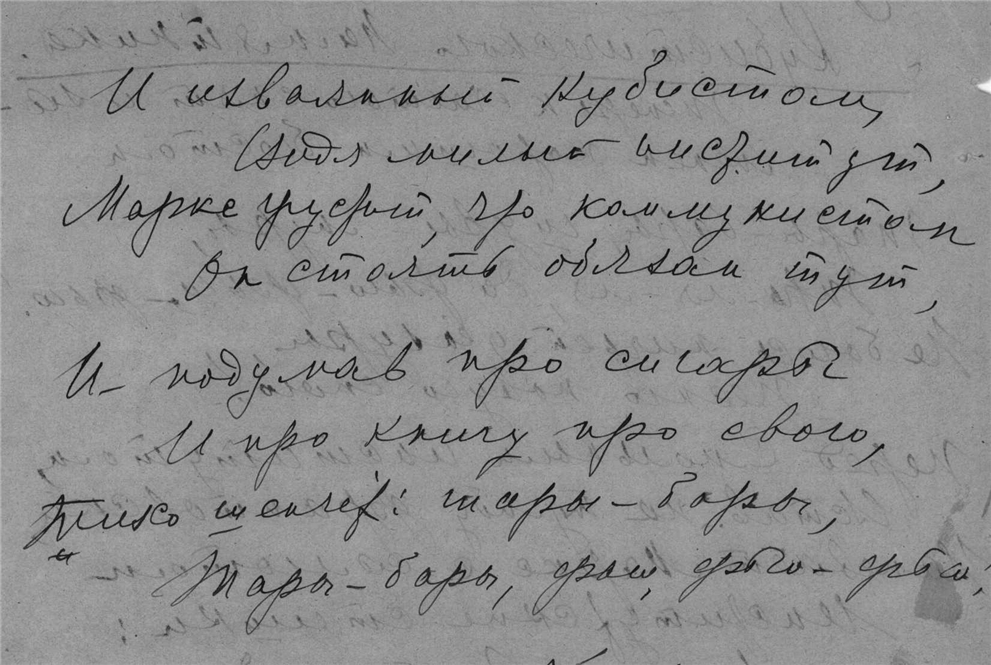 И изваянный кубистом,
Видя милый институт,
Маркс грустит, что коммунистом
Он стоять обязан тут,
И подумав про сигары
И про книгу про свою,
Тихо шепчет: тары-бары,
Тары-бары, фью, фью-фью!